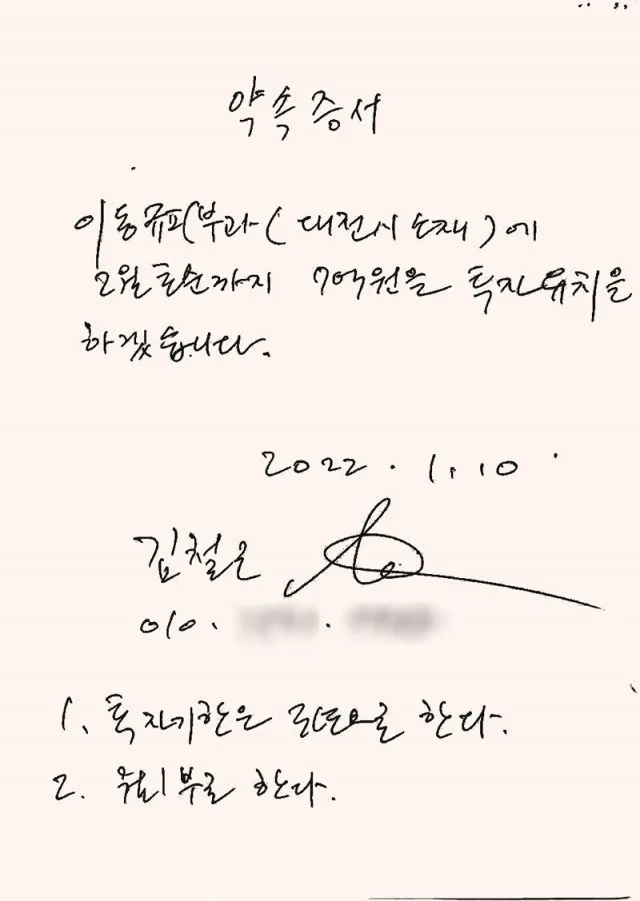 약속증서
이동규피부과(대전시 소재)에
2월 초순까지 7억원을 투자유치을
하겠습니다.
2022. 1. 10
김철근
010.
1. 투자기한은 로 한다.
2. 부로 한다.